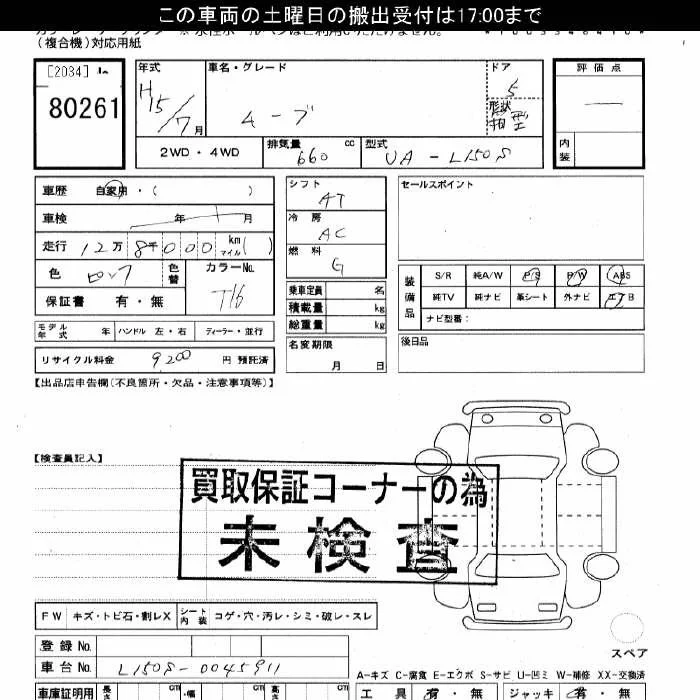 この車両の土曜日の搬出受付は17:00まで
(複合機)対応用紙
[2034]
80261
年式
H15/7月
車名・グレード
ムーブ
ドア
5
形状
箱型
評価点
内装
2WD・4WD
排気量 660 cc
型式 UA-L150S
車歴 自家用・( )
車検 年 月
走行 12万8千000 km マイル( )
色
色替
カラーNo.
T16
保証書 有・無
モデル年式 年 ハンドル 左・右 ディーラー・並行
リサイクル料金 9,200 円 預託済
シフト
AT
冷房
AC
燃料
G
乗車定員 名
積載量 kg
総重量 kg
名変期限
月 日
セールスポイント
装備品
S/R 純A/W P/S P/W ABS
純TV 純ナビ 革シート 外ナビ エアB
ナビ型番:
後日品
【出品店申告欄(不良箇所・欠品・注意事項等)】
【検査員記入】
買取保証コーナーの為
未検査
FW キズ・トビ石・割レX シート内装 コゲ・穴・汚レ・シミ・破レ・スレ
登録No.
車台No. L150S-0045911
スペア
A-キズ C-腐食 E-エクボ S-サビ U-凹ミ W-補修 XX-交換済
車庫証明用 長さ cm 幅 cm 高さ cm
工具 有・無 ジャッキ 有・無